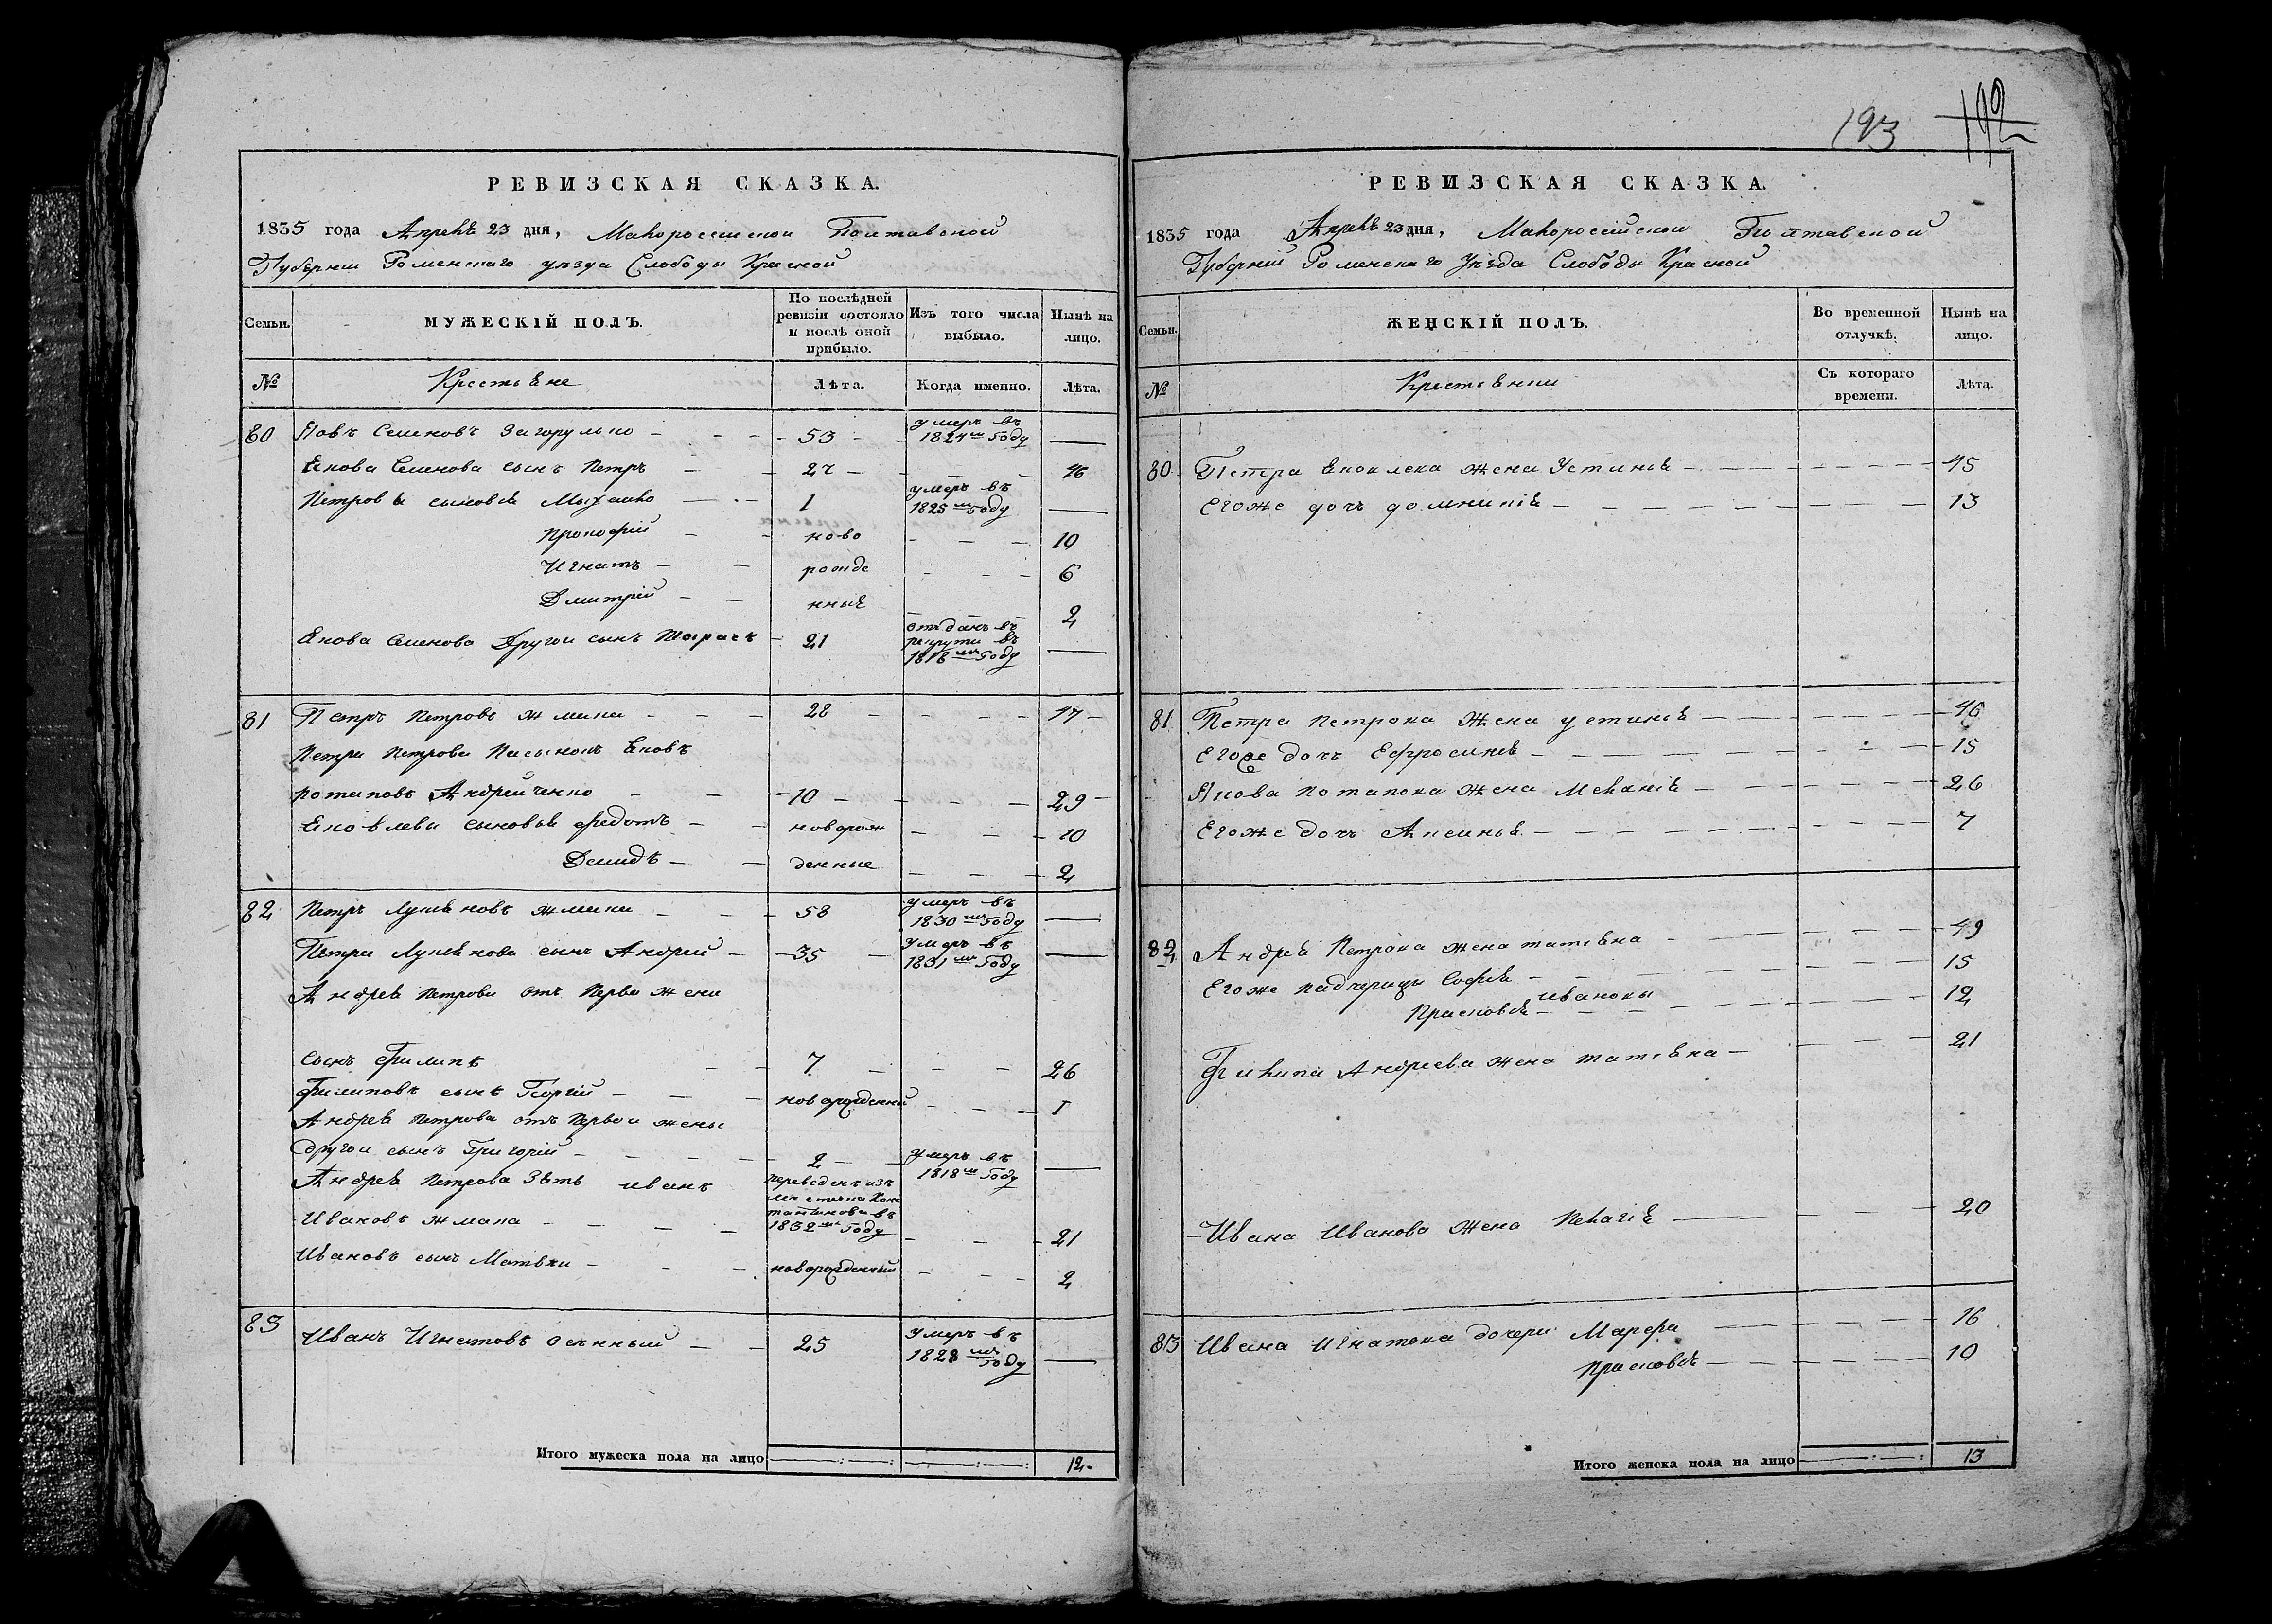 193 192
РЕВИЗСКАЯ СКАЗКА.
1835 года Апрелѣ 23 дня, Малороссійской Полтавской
Губерніи Роменскаго уѣзда Слободы Красной
Семьи. МУЖЕСКІЙ ПОЛЪ. По послѣдней ревизіи состояло и послѣ оной прибыло. Изъ того числа выбыло. Нынѣ на лицо.
№ Крестьяне Лѣта. Когда именно. Лѣта.
80 Яковъ Семеновъ Загорулько 53 умеръ въ 1824мъ году
Якова Семенова сынъ Петръ 27 46
Петровы сыновья Михайло 1 умеръ въ 1825мъ году
Прокофій ново 10
Игнатъ рожде 6
Дмитрій нные 2
Якова Семенова Другои сынъ Тарасъ 21 отъданъ въ рекруты въ 1818мъ году
81 Петръ Петровъ Жмака 28 47
Петра Петрова Пасынокъ Яковъ
Потаповъ Андрейченко 10 29
Яковлевы сыновья Федотъ новорож 10
Демидъ денные 2
82 Петръ Лукяновъ Жмака 58 умеръ въ 1830мъ году
Петра Лукянова сынъ Андрей 35 умеръ въ 1831мъ году
Андрея Петрова отъ Первои жены
сынъ Филипъ 7 26
Филиповъ сынъ Георгій новорожденный 1
Андрея Петрова отъ Первои жены
Другои сынъ Григорій 2 умеръ въ 1818мъ году
Андрея Петрова Зять Иванъ переведенъ изъ
Ивановъ Жмака 1832мъ году 21
Ивановъ сынъ Матвѣи новорожденный 2
83 Иванъ Игнатовъ Осѣнный 25 умеръ въ 1828мъ году
Итого мужеска пола на лицо 12.
РЕВИЗСКАЯ СКАЗКА.
1835 года Апрелѣ 23 дня, Малороссійской Полтавской
Губерніи Роменскаго Уѣзда Слободы Красной
Семьи. ЖЕНСКІЙ ПОЛЪ. Во временной отлучкѣ. Нынѣ на лицо.
№ Крестьянки Съ котораго времени. Лѣта.
80 Петра Яковлева жена Устинья 45
Егоже дочъ Домникія 13
81 Петра Петрова Жена Устинья 46
Егоже дочъ Ефросинья 15
Якова Потапова жена Меланія 26
Егоже дочъ Аксинья 7
82 Андрея Петрова жена татіяна 49
Егоже падчерицы Софія 15
Ивановы
Прасковія 12
Филипа Андреева жена татіяна 21
Ивана Иванова жена Пелагія 20
83 Ивана Игнатова дочери Марфа 16
Прасковія 10
Итого женска пола на лицо 13